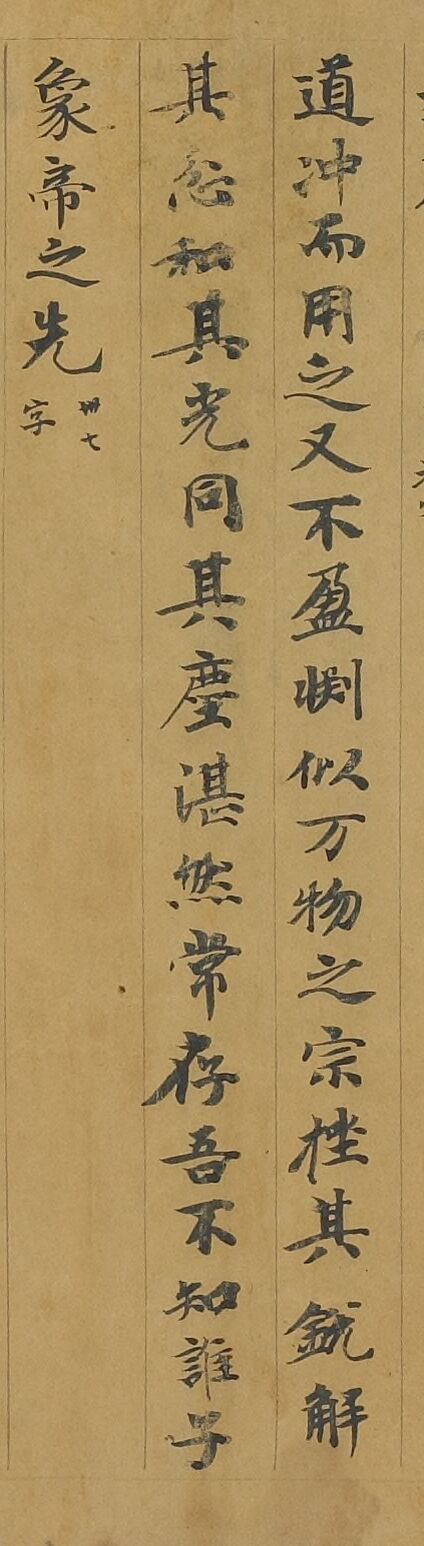 道冲而用之又不盈渕似万物之宗挫其銳解
其忿和其光同其塵湛然常存吾不知誰子
象帝之先卌七字